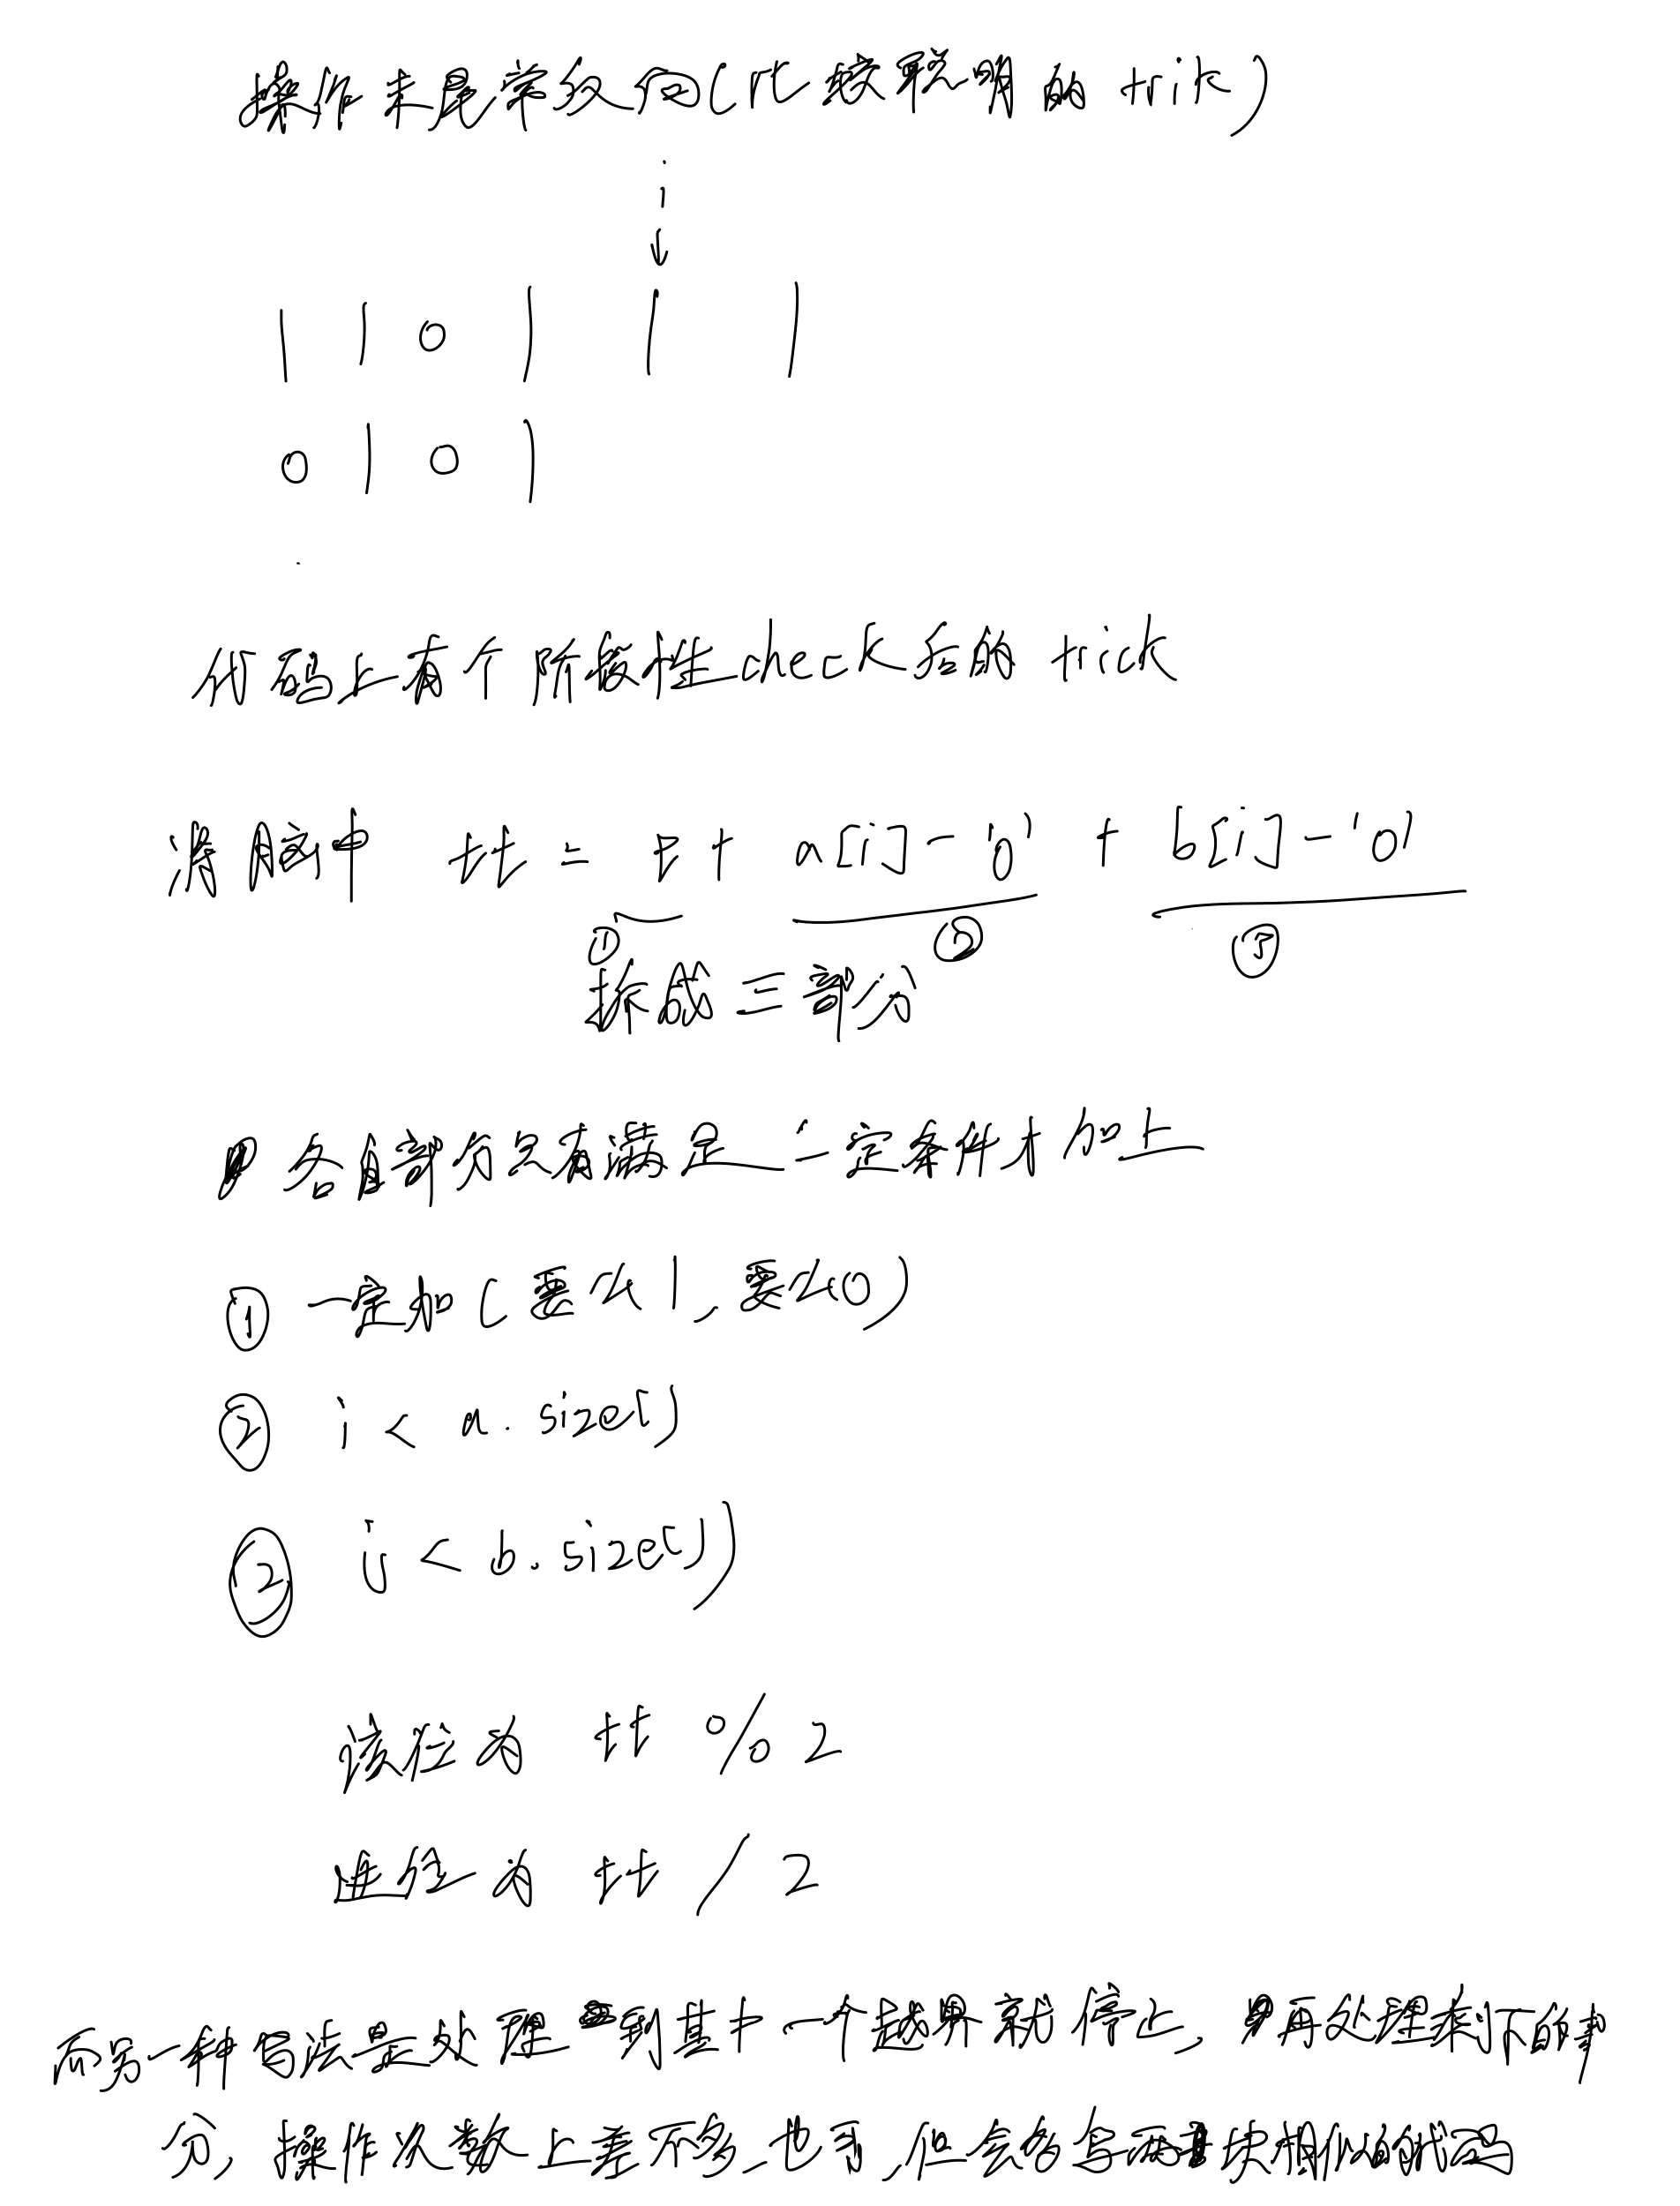 操作末尾常数回(比较聪明的 trik)
i
↓
1 1 0 1 1 1
0 1 0 1
代码上有个阶段性check后的 trick
将脑中 tt = t + a[i] - '0' + b[i] - '0'
① ② ③
拆成三部分
各自部分只有满足一定条件才加上
① 一定加(要么1, 要么0)
② i < a.size()
② ij < b.size())
该位为 tt % 2
进位为 tt / 2
而另一种写法是处理到其中一个越界就停止, 再处理剩下的部
分, 操作次数上差不多, 也可, 但会多写两块相似的代码